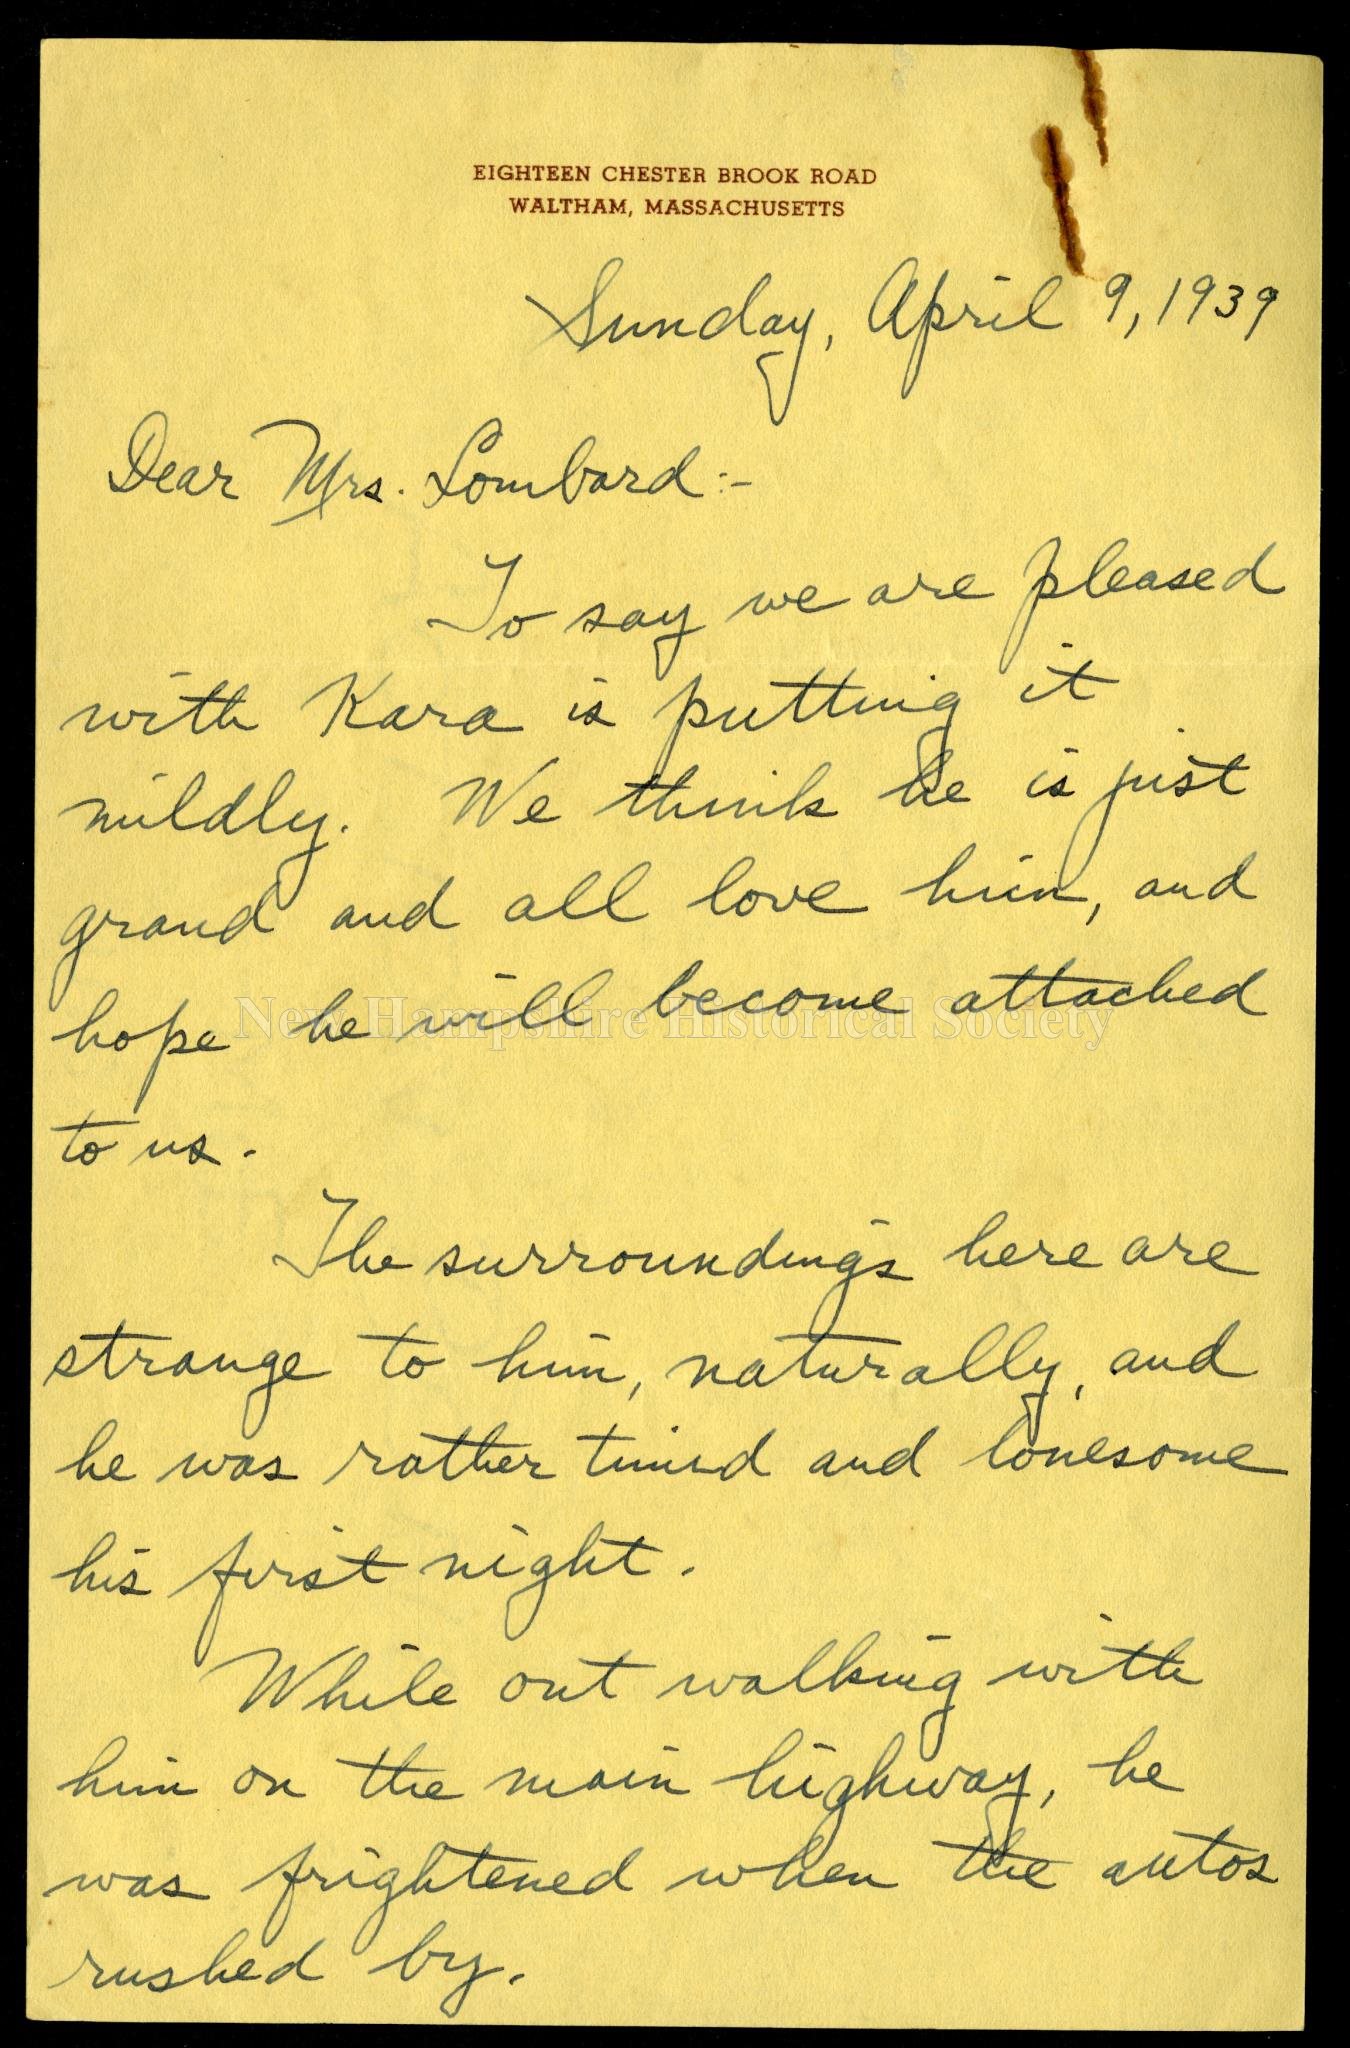 EIGHTEEN CHESTER BROOK ROAD
WALTHAM, MASSACHUSETTS
Sunday, April 9, 1939
Dear Mrs. Lombard:-
To say we are pleased
with Kara is putting it
mildly. We think he is just
grand and all love him, and
hope he will become attached
New Hampshire Historical Society
to us.
The surroundings here are
strange to him, naturally, and
he was rather timid and lonesome
his first night.
While out walking with
him on the main highway, he
was frightened when the autos
rushed by.